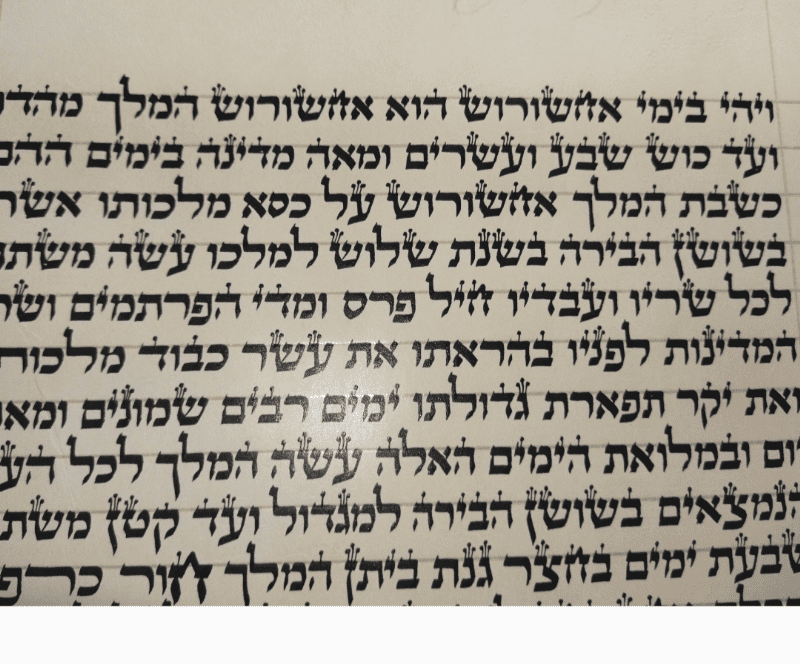 ויהי בימי אחשורוש הוא אחשורוש המלך
ועד כוש שבע ועשרים ומאה מדינה בימים
כשבת המלך אחשורוש על כסא מלכותו אשר
בשושן הבירה בשנת שלוש למלכו עשה
לכל שריו ועבדיו חיל פרס ומדי הפרתמים
המדינות לפניו בהראתו את עשר כבוד
ואת יקר תפארת גדולתו ימים רבים שמונים
יום ובמלואת הימים האלה עשה המלך לכל
הנמצאים בשושן הבירה למגדול ועד קטן
שבעת ימים בחצר גנת ביתן המלך חור